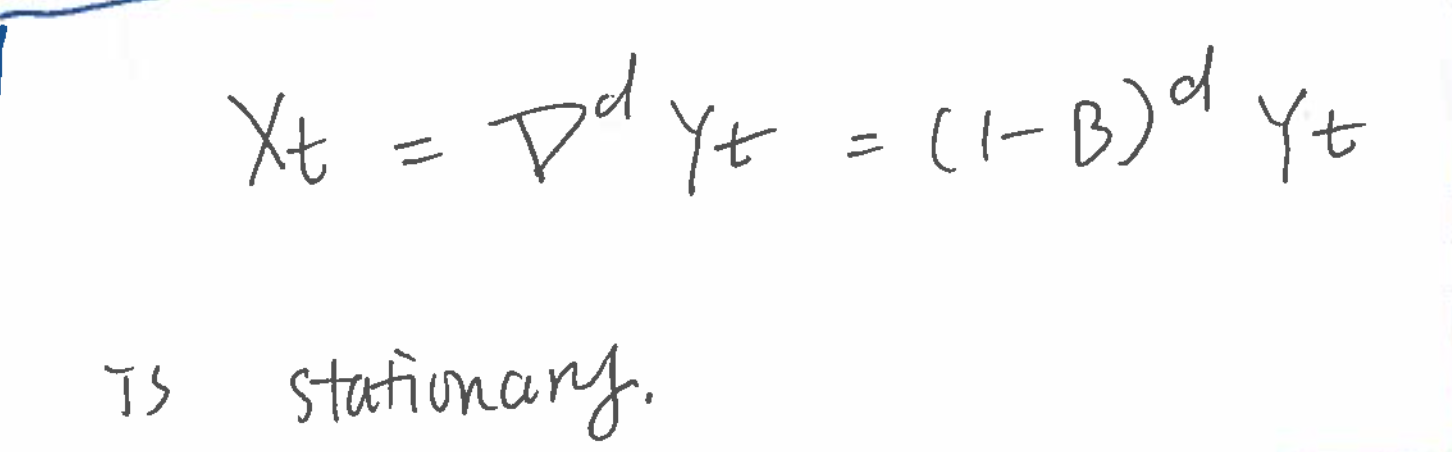 Xt = ∇^d Yt = (1-B)^d Yt
is stationary.